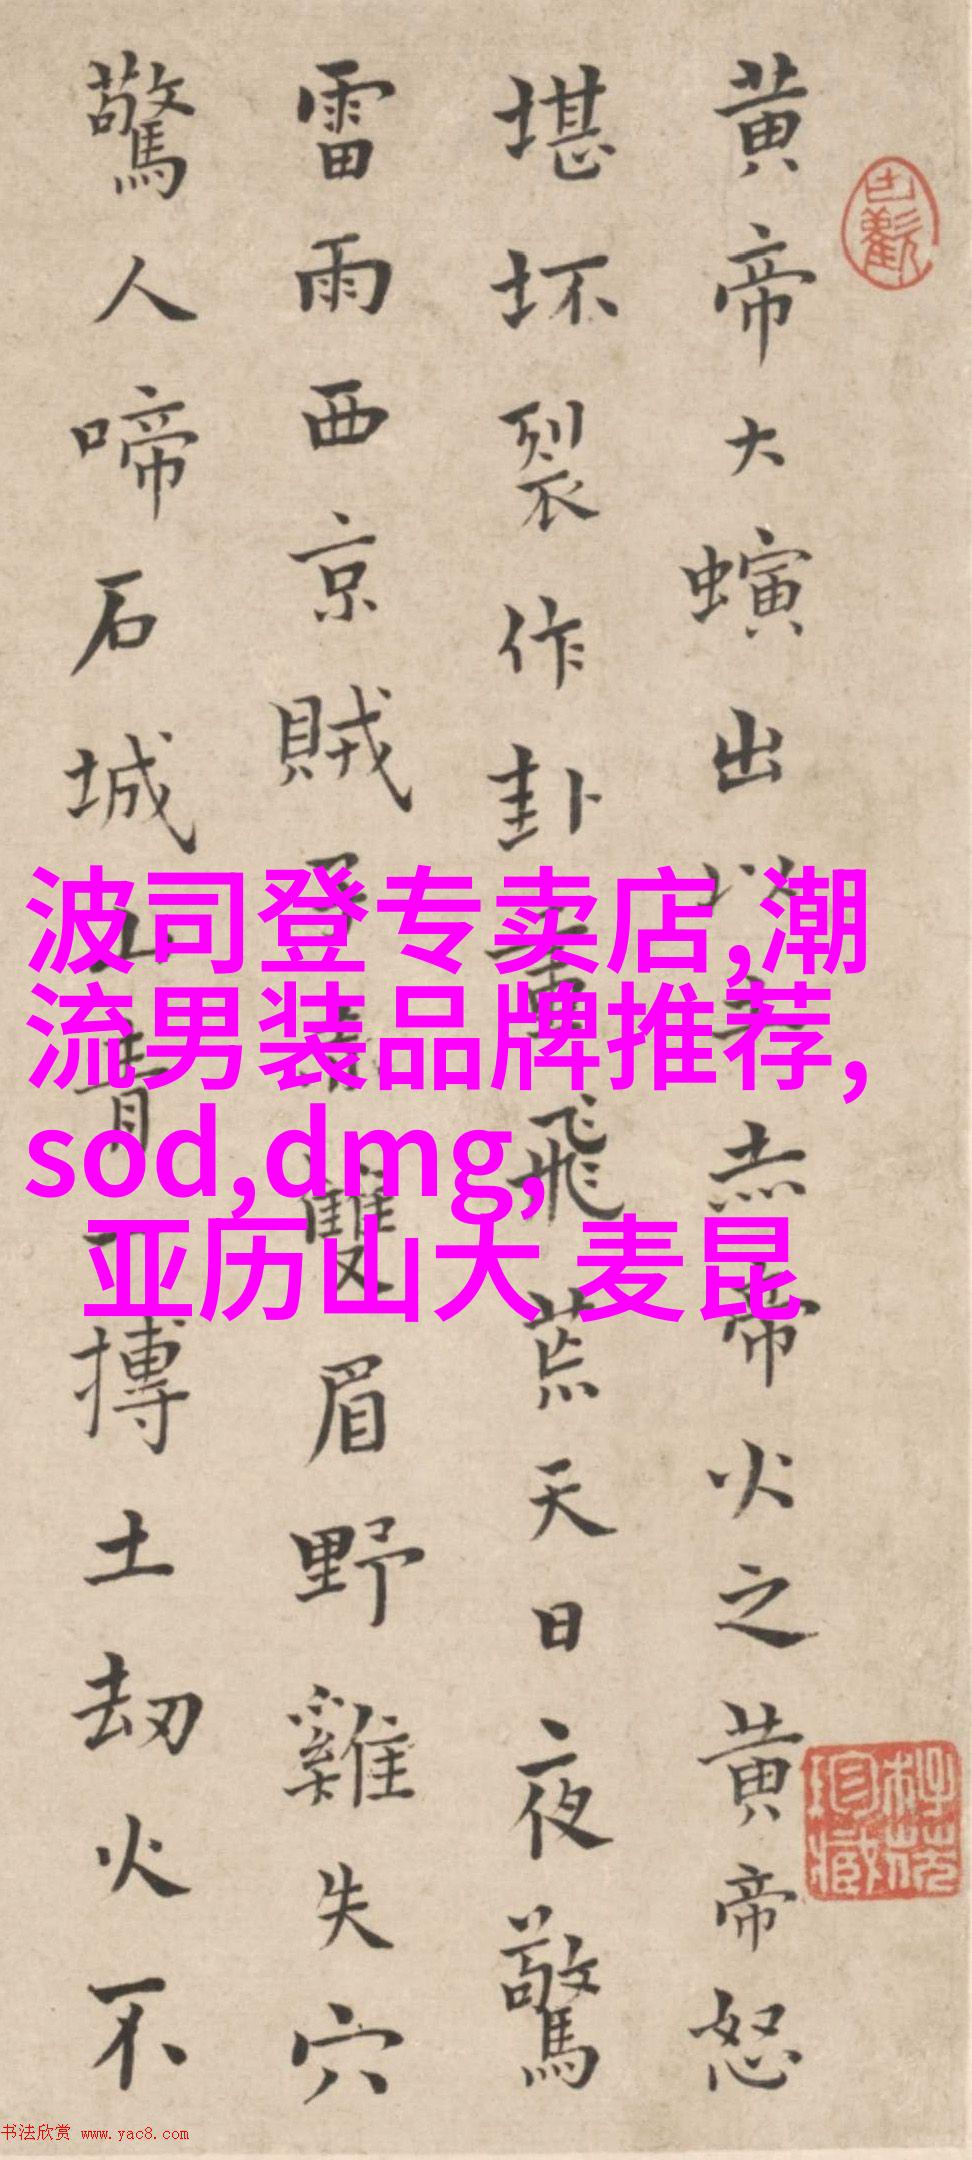 黄帝大螾出以赤帝火之黄帝怒
堪坏裂作卦飛荒天日夜驚
雷雨西京賊雙眉野雞失穴
驚人啼石城山青一摶土劫火不
波司登专卖店,潮
流男装品牌推荐,
sod,dmg,
亚历山大 麦昆
书法欣赏 www.yac8.com